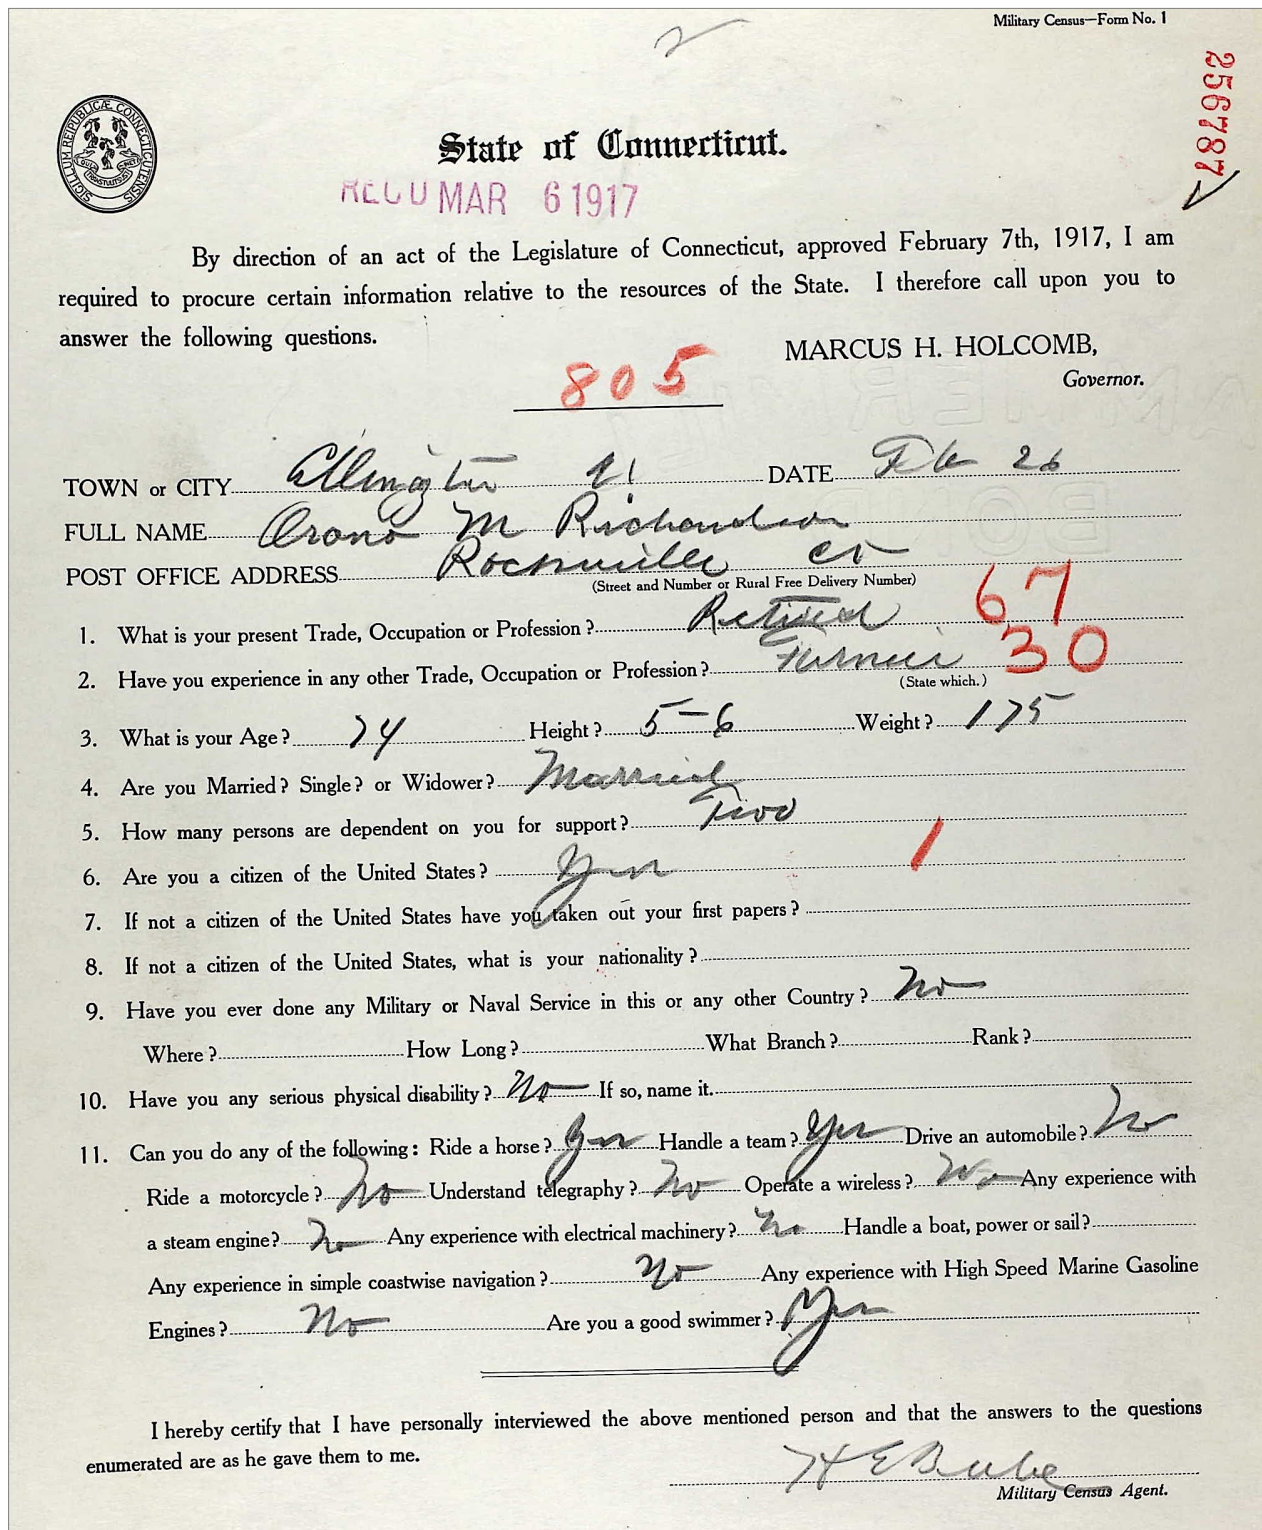 Military Census—Form No. 1
256787
SIGILLUM REIPUBLICÆ CONNECTICUTENSIS
State of Connecticut.
REC'D MAR 6 1917
By direction of an act of the Legislature of Connecticut, approved February 7th, 1917, I am
required to procure certain information relative to the resources of the State. I therefore call upon you to
answer the following questions.
MARCUS H. HOLCOMB,
Governor.
805
TOWN or CITY Ellington DATE Feb 26
FULL NAME M Richardson
POST OFFICE ADDRESS Rockville Ct
(Street and Number or Rural Free Delivery Number)
67
1. What is your present Trade, Occupation or Profession? Retired
2. Have you experience in any other Trade, Occupation or Profession? Farmer 30
(State which.)
3. What is your Age? 74 Height? 5-6 Weight? 175
4. Are you Married? Single? or Widower? Married
5. How many persons are dependent on you for support? Two
6. Are you a citizen of the United States? Yes 1
7. If not a citizen of the United States have you taken out your first papers?
8. If not a citizen of the United States, what is your nationality?
9. Have you ever done any Military or Naval Service in this or any other Country? No
Where? How Long? What Branch? Rank?
10. Have you any serious physical disability? No If so, name it.
11. Can you do any of the following: Ride a horse? Yes Handle a team? Yes Drive an automobile? No
Ride a motorcycle? No Understand telegraphy? No Operate a wireless? No Any experience with
a steam engine? No Any experience with electrical machinery? No Handle a boat, power or sail?
Any experience in simple coastwise navigation? No Any experience with High Speed Marine Gasoline
Engines? No Are you a good swimmer? Yes
I hereby certify that I have personally interviewed the above mentioned person and that the answers to the questions
enumerated are as he gave them to me.
H E
Military Census Agent.